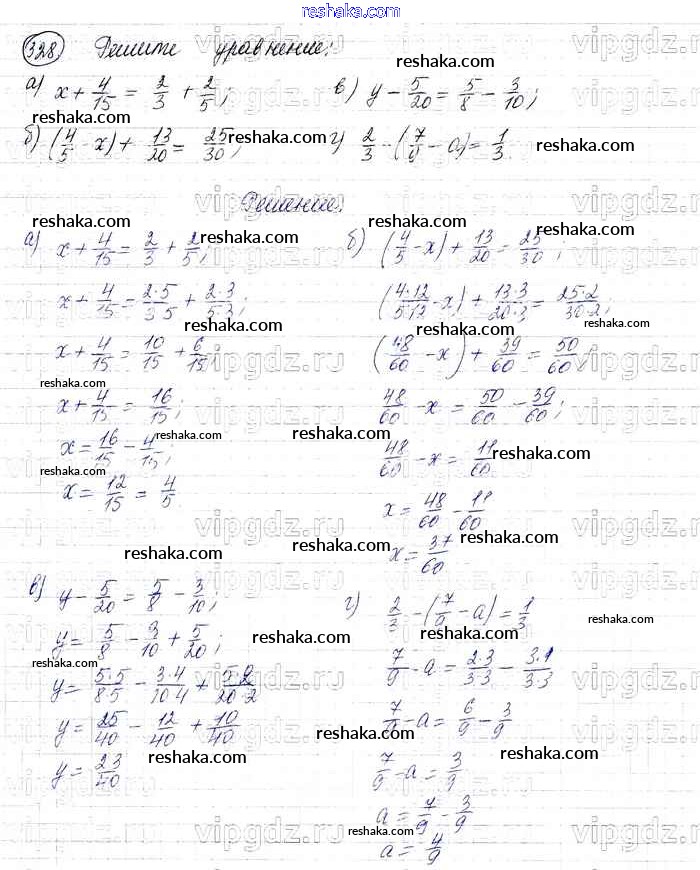 reshaka.com
328. Решите уравнение:
а) x + 4/15 = 2/3 + 2/5; в) y - 5/20 = 5/8 - 3/10;
б) (4/5 - x) + 13/20 = 25/30; г) 2/3 - (7/9 - a) = 1/3.
Решение:
а) x + 4/15 = 2/3 + 2/5;
x + 4/15 = 2·5/3·5 + 2·3/5·3;
x + 4/15 = 10/15 + 6/15;
x + 4/15 = 16/15;
x = 16/15 - 4/15;
x = 12/15 = 4/5
б) (4/5 - x) + 13/20 = 25/30;
(4·12/5·12 - x) + 13·3/20·3 = 25·2/30·2;
(48/60 - x) + 39/60 = 50/60;
48/60 - x = 50/60 - 39/60;
48/60 - x = 11/60
x = 48/60 - 11/60
x = 37/60
в) y - 5/20 = 5/8 - 3/10;
y = 5/8 - 3/10 + 5/20;
y = 5·5/8·5 - 3·4/10·4 + 5·2/20·2
y = 25/40 - 12/40 + 10/40
y = 23/40
г) 2/3 - (7/9 - a) = 1/3
7/9 - a = 2·3/3·3 - 3·1/3·3
7/9 - a = 6/9 - 3/9
7/9 - a = 3/9
a = 7/9 - 3/9
a = 4/9
reshaka.com
vipgdz.ru